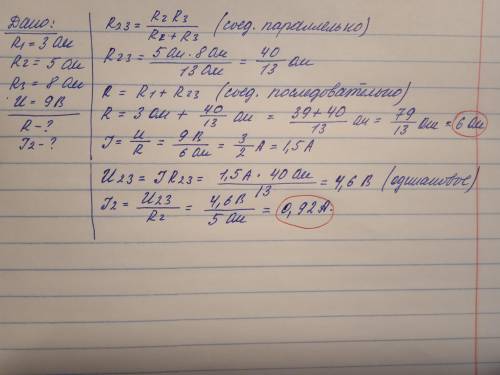 Дано:
R1 = 3 Ом
R2 = 5 Ом
R3 = 8 Ом
U = 9В
R - ?
I2 - ?
R23 = R2 R3 / R2 + R3 (соед. параллельно)
R23 = 5 Ом · 8 Ом / 13 Ом = 40/13 Ом
R = R1 + R23 (соед. последовательно)
R = 3 Ом + 40/13 Ом = 39 + 40 / 13 Ом = 79/13 Ом = 6 Ом
I = U/R = 9 В / 6 Ом = 3/2 А = 1,5 А
U23 = I R23 = 1,5 А · 40 Ом / 13 = 4,6 В (одинаковое)
I2 = U23 / R2 = 4,6 В / 5 Ом = 0,92 А.